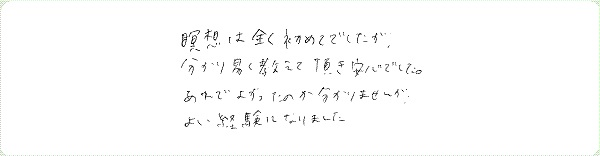 瞑想は全く初めてでしたが、
分かり易く教えて頂き安心でした。
あれでよかったのか分かりませんが、
よい経験になりました